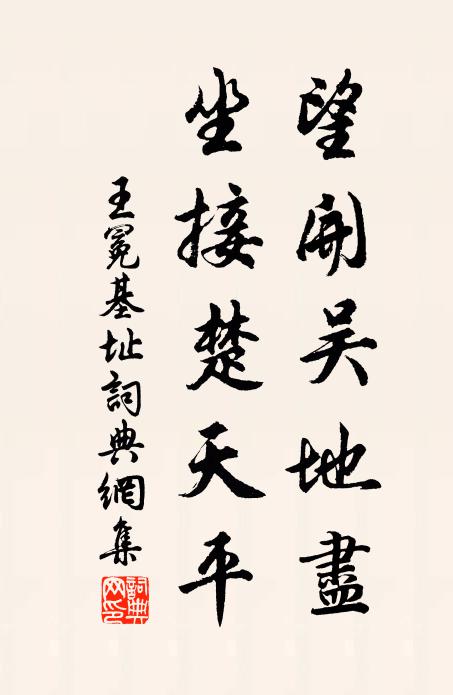 望開吴地盡
坐接楚天平
王冕基址詞典網集
詞典網印